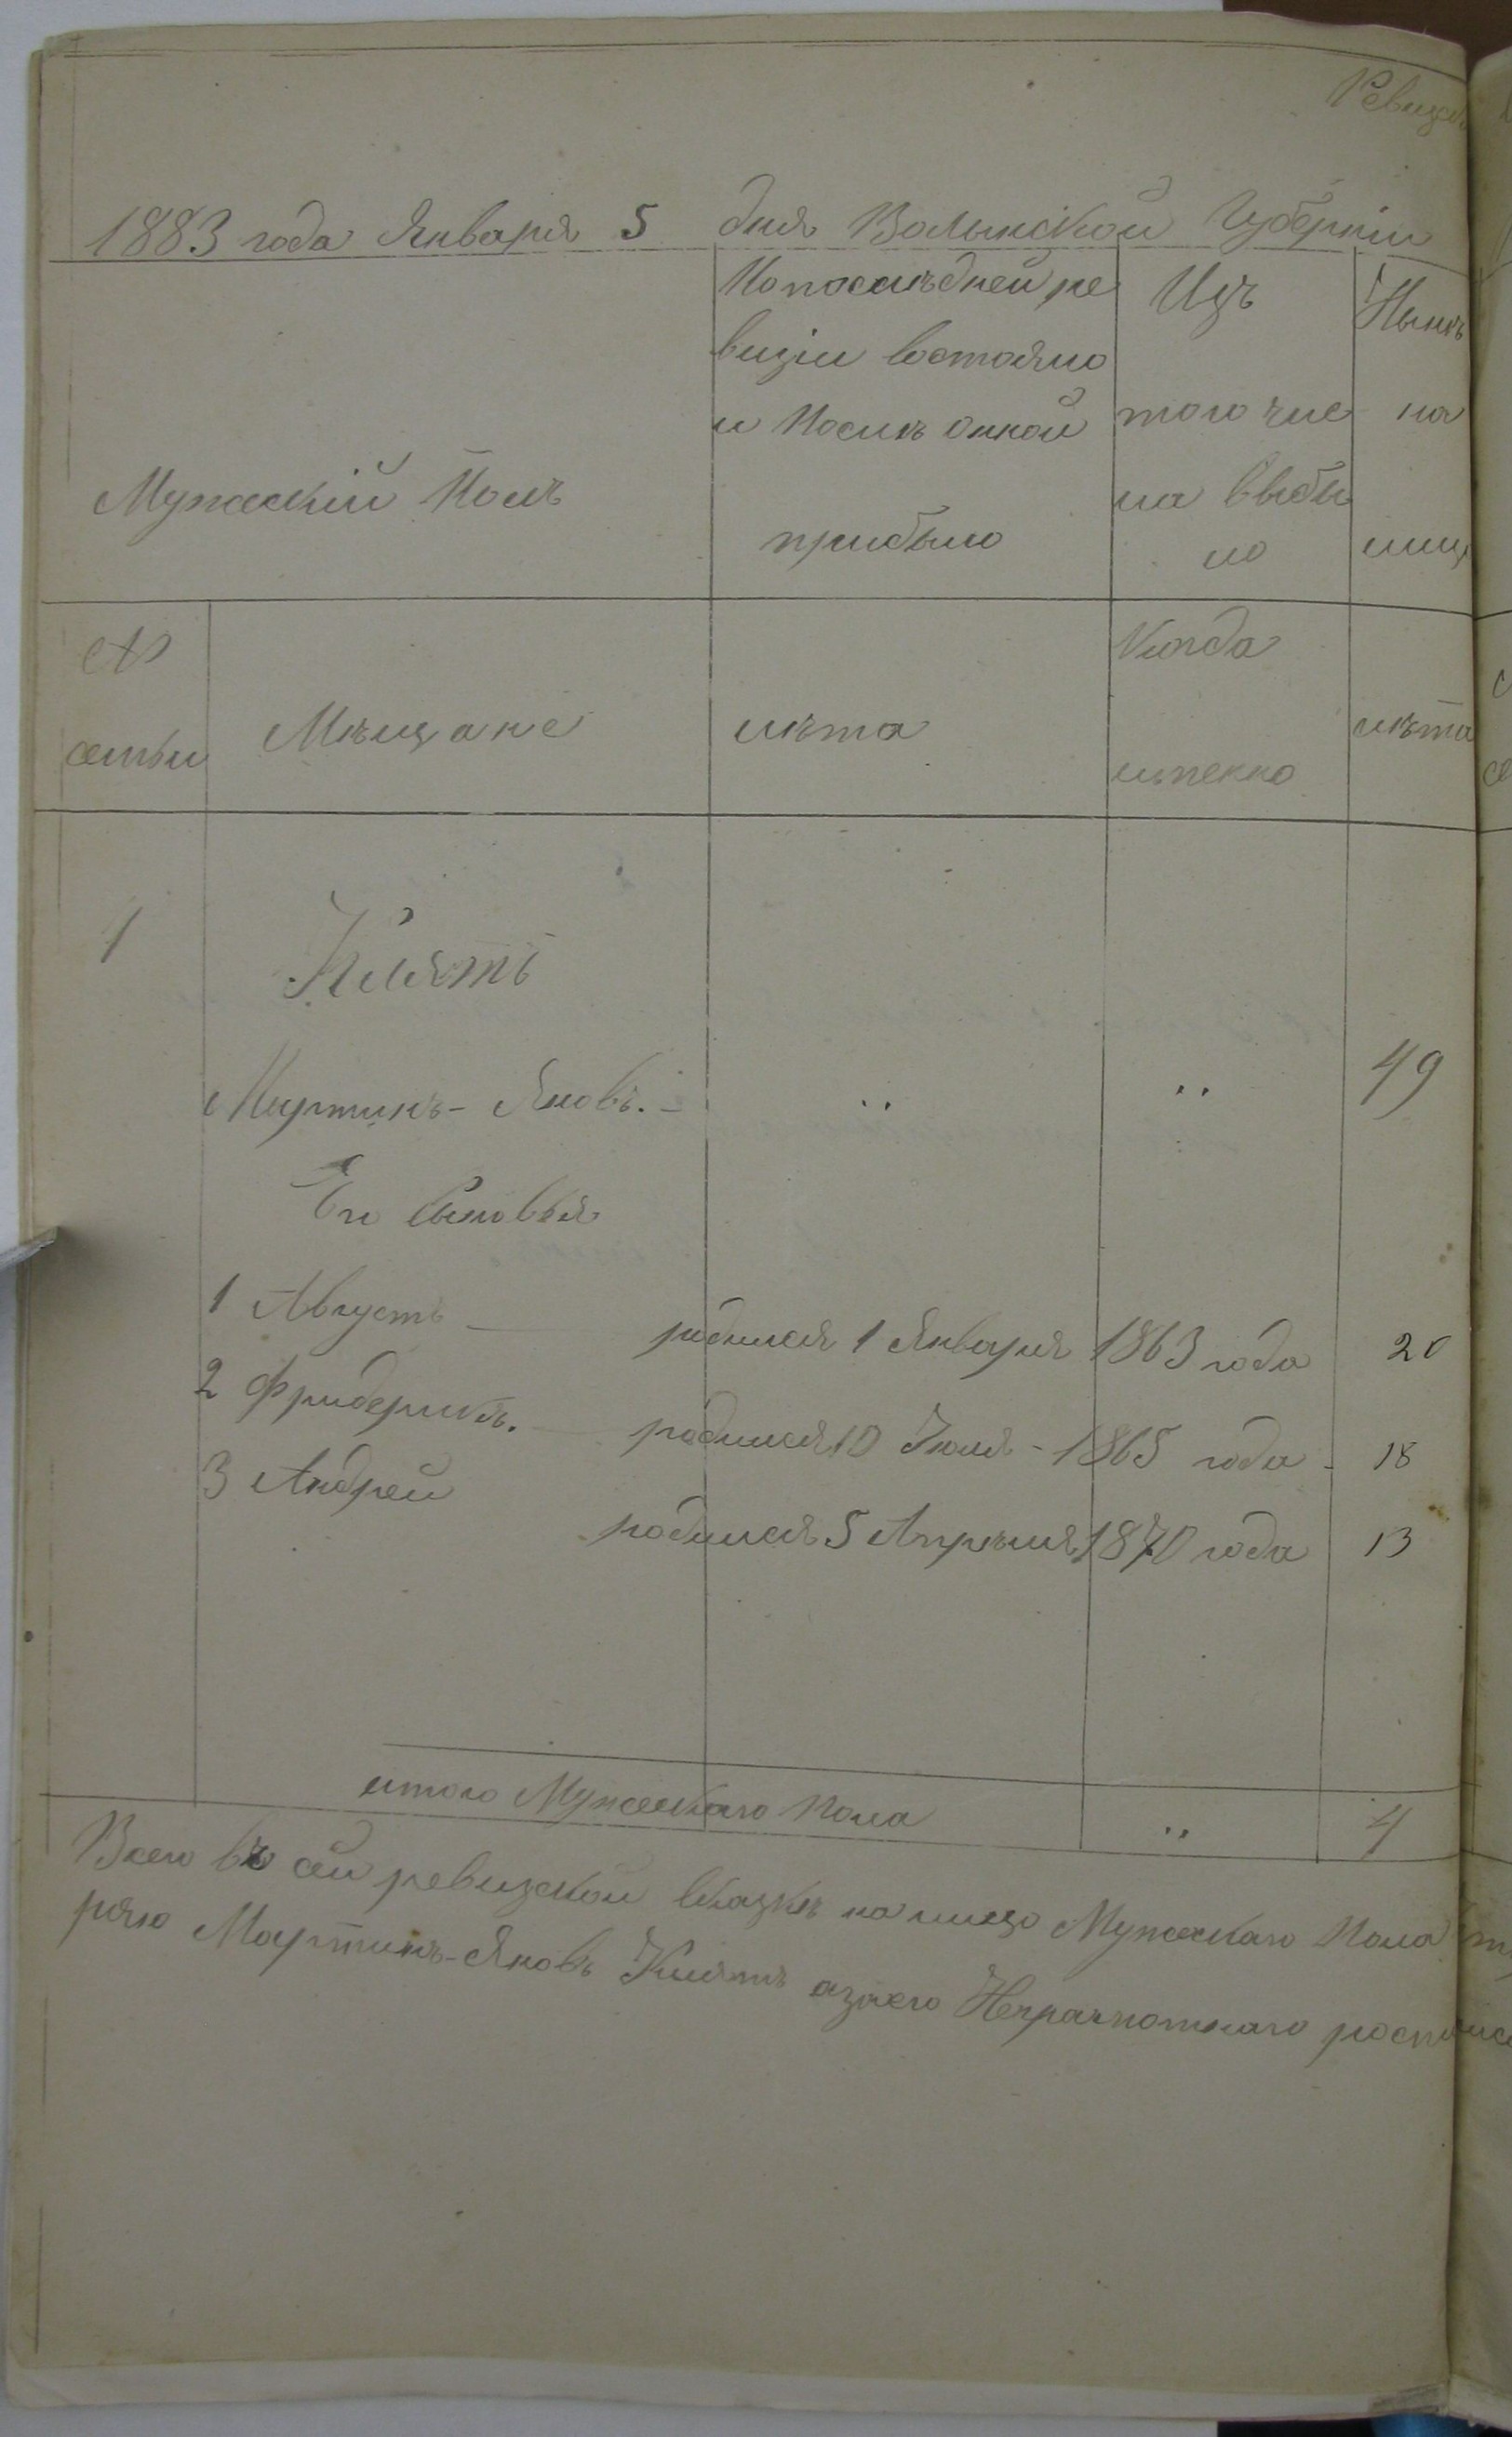 Ревизск
1883 года Января 5 дня Волынской Губерніи
Мужескій Полъ
Попослѣдней ре
визіи состояло
и Послѣ онной
прибыло
Изъ
того чис
ла выбы
ло
Нынѣ
на
лицо
№
семьи
Мѣщане
лѣта
Когда
именно
лѣта
1 Клятъ
Мартинъ - Яковъ. - " " 49
Его Сыновья
1 Августъ — родился 1 Января 1863 года 20
2 Фридерикъ. — родился 10 Іюля - 1865 года - 18
3 Андрей родился 5 Апрѣля 1870 года 13
итого Мужескаго пола " 4
Всего въ сей ревизской сказкѣ на лицо Мужескаго Пола
рячю Мартинъ-Яковъ Клятъ азаего Неграмотнаго росписа